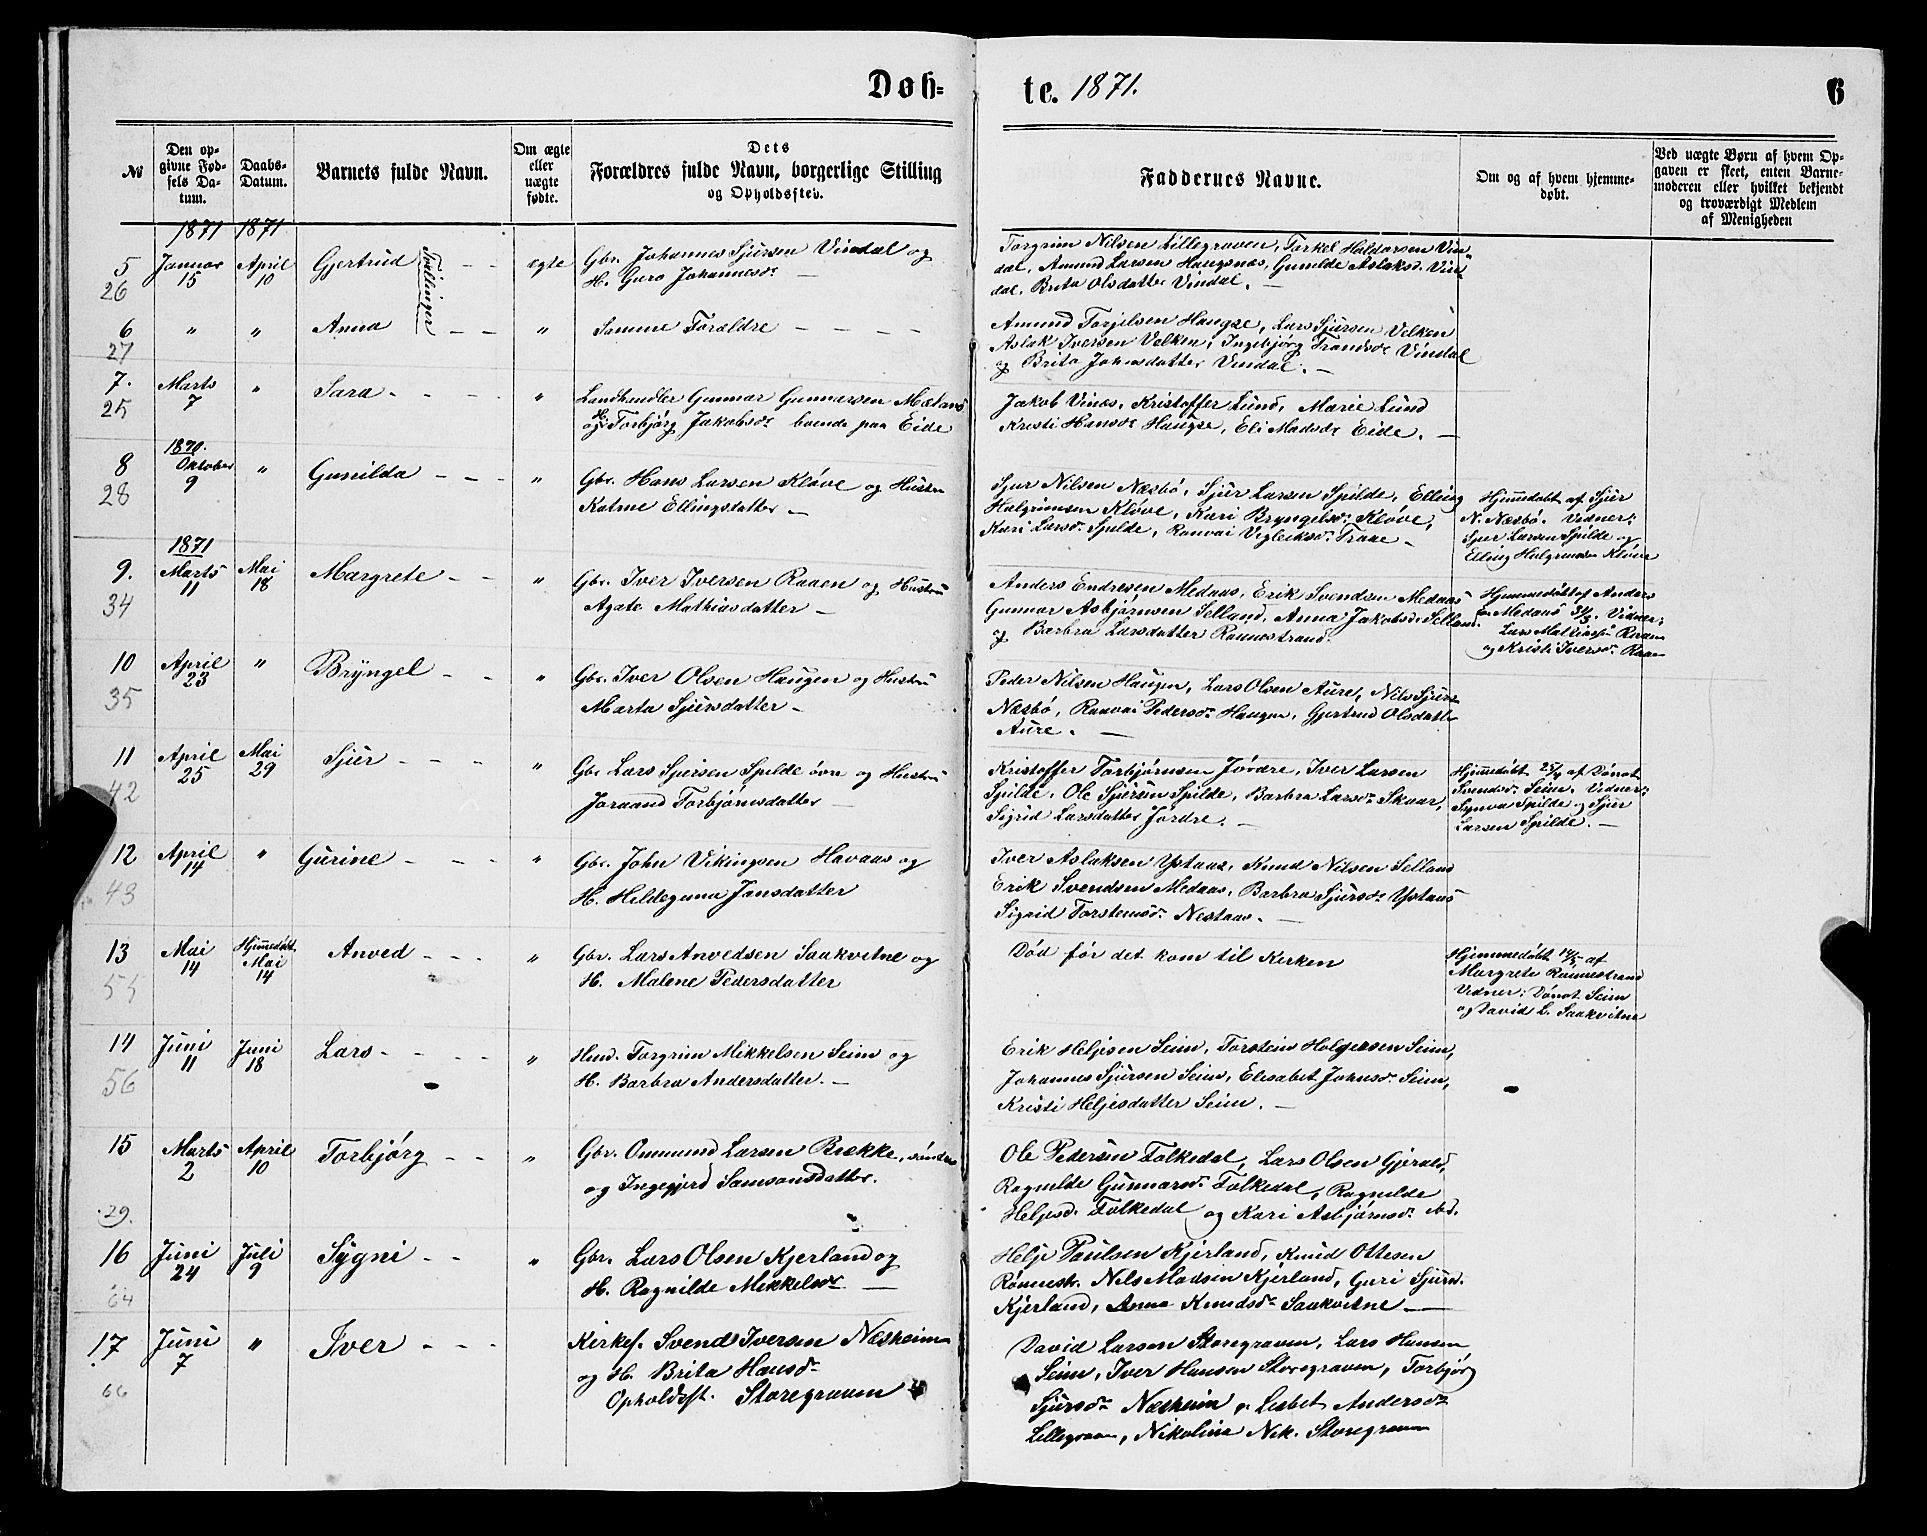 Døb=
te. 1871.
6
№
Den op-
givne Fød-
sels Da-
tum.
Daabs-
Datum.
Barnets fulde Navn.
Om ægte
eller
uægte
fødte.
Dets
Forældres fulde Navn, borgerlige Stilling
og Opholdssted.
Faddernes Navne.
Om og af hvem hjemme-
døbt.
Ved uægte Børn af hvem Op-
gaven er skeet, enten Barne-
moderen eller hvilket bekjendt
og troværdigt Medlem
af Menigheden
1871 1871
5 Januar April Gjertrud Tvillinger - - ægte Gbr. Johannes Sjursen Vindal og
26 15 10 H. Guro Johannesdr —
Torgrim Nilsen Lillegraven, Torkel Haldorsen Vin-
dal, Amund Larsen Haugsnæs, Gunilde Aslaksd. Vin-
dal, Brita Olsdatter Vindal. —
6 " " Anna - - " Samme Forældre - - - -
27
Amund Torjilsen Haugse, Lars Sjursen Velken
Aslak Iversen Velken, Ingebjørg Trondsdr Vindal
og Brita Johnsdatter Vindal. —
7. Marts " Sara - - - - " Landhandler Gunnar Gunnarsen Mælans
25 7 og H. Torbjørg Jakobsdr boende paa Eide
Jakob Vinæs, Kristoffer Lund, Marie Lund
Kristi Hansdr Haugse, Eli Madsdr Eide. —
1870.
8 Oktober " Gunilda - - - " Gbr. Hans Larsen Kløve og Hustru
28 9 Katrine Ellingsdatter —
Sjur Nilsen Næsbø, Sjur Larsen Spilde, Elling
Halgrimsen Kløve, Kari Bryngelsdr Kløve,
Kari Larsdr Spilde, Ranvei Vigleiksdr Traae —
Hjemmedøbt af Sjur
N. Næsbø. Vidner:
Sjur Larsen Spilde og
Elling Halgrimsen Kløve
1871
9. Marts Mai Margrete - - " Gbr. Iver Iversen Raaen og Hustru
34 11 18 Agate Mathiasdatter —
Anders Endresen Medaas, Erik Svendsen Medaas
Gunnar Asbjørnsen Selland, Anna Jakobsd. Selland
og Barbra Larsdatter Rønnestrand.
Hjemmedøbt af Anders
E. Medaas 31/3. Vidner:
Lars Mathiassen Raaen
og Kristi Iversdr Raaen
10 April " Bryngel - - " Gbr. Iver Olsen Haugen og Hustru
35 23 Marta Sjursdatter —
Peder Nilsen Haugen, Lars Olsen Aure, Nils Sjurs.
Næsbø, Ranvei Pedersdr Haugen, Gjertrud Olsdatter
Aure. —
11 April Mai Sjur - - - " Gbr. Lars Sjursen Spilde øvre og Hustru
42 25 29 Joraand Torbjørnsdatter —
Kristoffer Torbjørnsen Jordre, Iver Larsen
Spilde, Ole Sjursen Spilde, Barbra Larsdr Skaar,
Sigrid Larsdatter Jordre. —
Hjemmedøbt 25/4 af Dønot
Svendsdr Seim. Vidner:
Synva Spilde og Sjur
Larsen Spilde. —
12 April " Gurine - - - " Gbr. John Vikingsen Havaas og
43 14 H. Hildeguna Jansdatter
Iver Aslaksen Ystaas, Knud Nilsen Selland
Erik Svendsen Medaas, Barbra Sjursdr Ystaas
Sigrid Torsteinsdr Nestaas. —
13 Mai Hjemmedøbt Anved - - - " Gbr. Lars Anvedsen Saakvitne og
55 14 Mai 14 H. Malene Pedersdatter
Død før det kom til Kirken
Hjemmedøbt 14/5 af
Margrete Rønnestrand
Vidner: Dønot Seim
og David L. Saakvitne
14 Juni Juni Lars - - - - " Hmd. Torgrim Mikkelsen Seim og
56 11 18 H. Barbra Andersdatter. —
Erik Heljesen Seim, Torstein Holgersen Seim,
Johannes Sjursen Seim, Elisabet Johnsdr Seim,
Kristi Heljesdatter Seim. —
15 Marts April Torbjørg - - " Gbr. Ommund Larsen Brekke, søndre
29. 2 10 og Ingegjerd Samsonsdatter.
Ole Pedersen Folkedal, Lars Olsen Gjerald,
Ragnilde Gunnarsdr Folkedal, Ragnilde
Heljesd. Folkedal og Kari Asbjørnsdr ibd.
16 Juni Juli Sygni - - " Gbr. Lars Olsen Kjerland og
64 24 9 H. Ragnilde Mikkelsdr —
Helje Paulsen Kjerland, Knud Ottesen
Rønnestr. Nils Madsen Kjerland, Guri Sjursd.
Kjerland, Anna Knudsdr Saakvitne —
17 Juni " Iver - - - Kirkes. Svend Iversen Næsheim
66 7 og H. Brita Hansdr
Opholdsst. Storegraven
David Larsen Storegraven, Lars Hansen
Seim, Iver Hansen Storegraven, Torbjør
Sjursdr Næsheim, Lisbet Andersdr
Lillegraven, Nikoline Nik. Storegraven